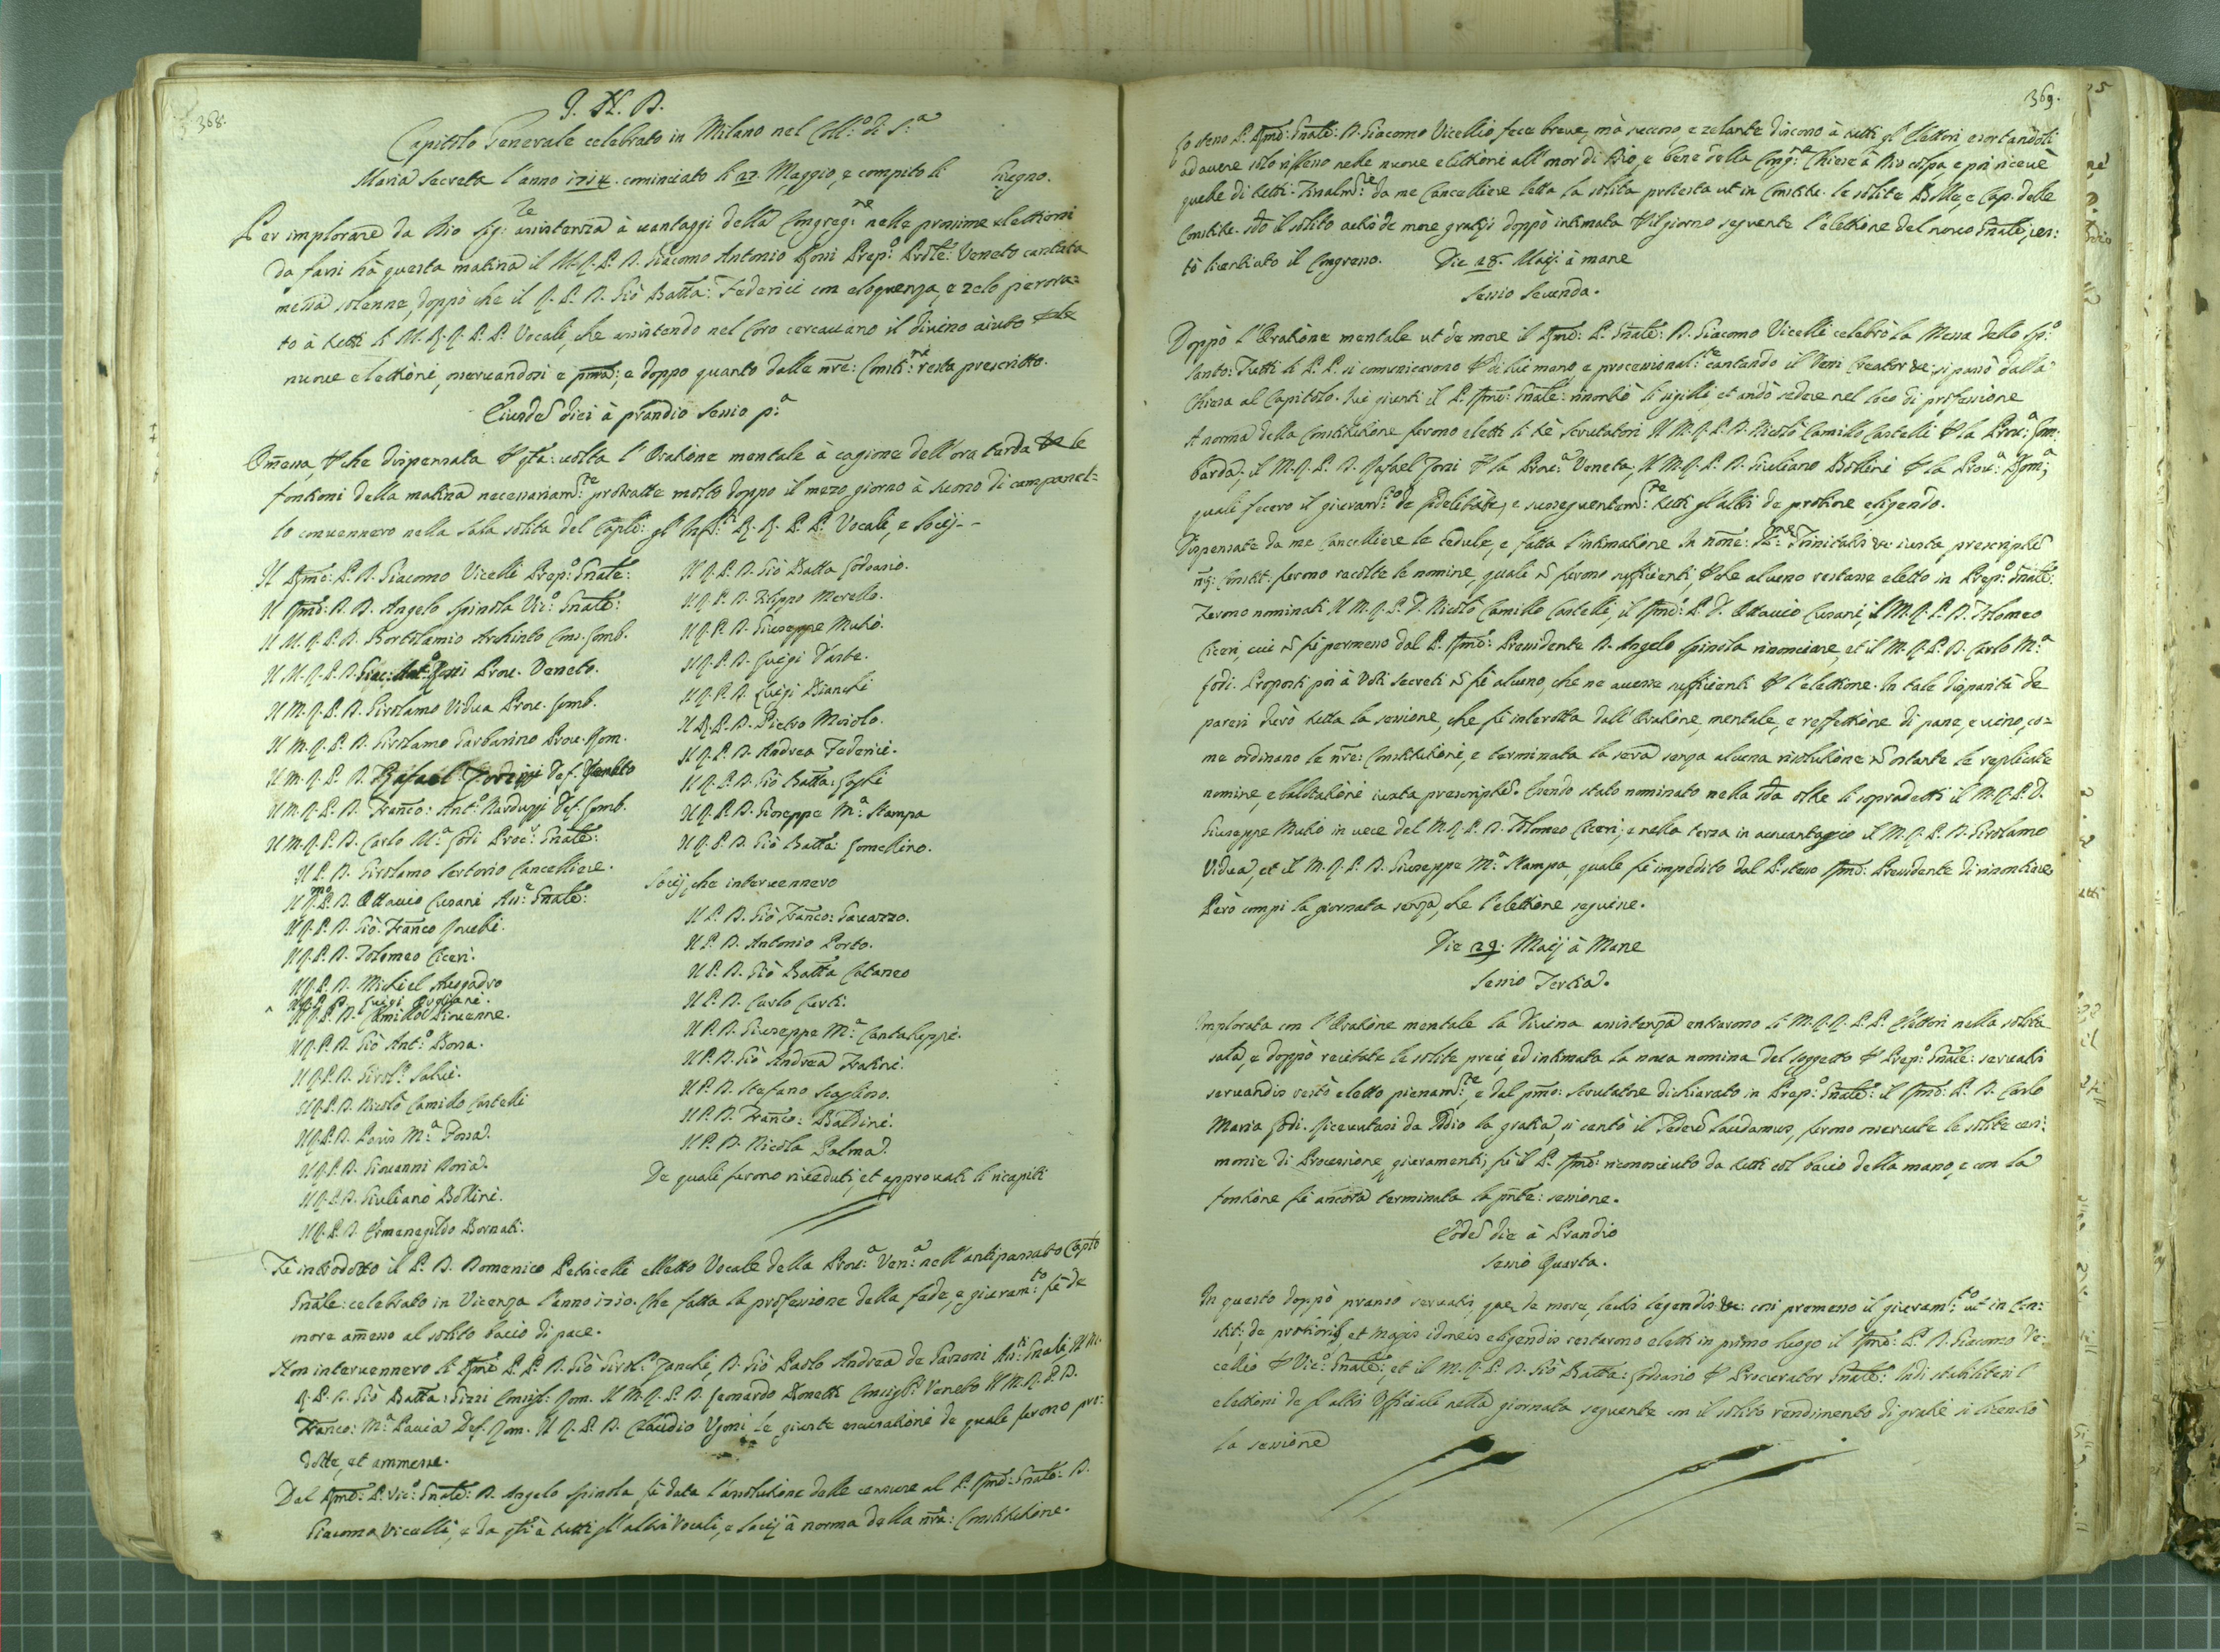 368.
J. H. D.
Capitolo Generale celebrato in Milano nel Coll:o di S:a
Maria Secreta l'anno 1714. cominciato li 27. Maggio, e compito li Giugno.
Per implorare da Dio Sig:re assistenza à vantaggi della Congreg:ne nelle prossime elettioni
da farsi hà questa matina il M. R. P. D. Giacomo Antonio Rossi Prep:o Prõle: Veneto cantata
messa solenne, doppò che il R. P. D. Giò Batta: Federici con eloquenza, e zelo perora=
to à tutti li M. R. R. P. P. Vocali, che assistendo nel Coro cercavano il divino aiuto
nuove elettioni, osservandosi e pma:, e doppo quanto dalle nre: Constit:ni resta prescritto.
Eiusdẽ diei à prandio Sessio p:a
Omessa, che dispensata p qta: volta l'Oratione mentale à cagione dell'ora tarda le
fontioni della matina necessariam:te protratte molto doppo il mezo giorno à suono di campanel=
lo convennero nella Sala solita del Caplo: gl' R. R. P. P. Vocali, e Socij - -
Il Rmo: P. D. Giacomo Vicelli Prep:o Gnãle:
Il Rmo: P. D. Angelo Spinola Vic:o Gnãle:
Il M. R. P. D. Bortolamio Archinto Cons. Lomb.
Il M. R. P. D. Giac: Ant:o Rossi Prov. Veneto.
Il M. R. P. D. Girolamo Vidua Prov. Lomb.
Il M. R. P. D. Girolamo Garbarino Prov. Rom.
Il M. R. P. D. Rafael Def. Veneto
Il M. R. P. D. Franco: Ant:o Narduzzi Def. Lomb.
Il M. R. P. D. Carlo M:a Lodi Proc:r Gnãle:
Il P. D. Girolamo Sertorio Cancelliere.
Il Rmo P. D. Ottavio Cusani Ass:e Gnãle:
Il R. P. D. Giò. Franco
Il R. P. D. Tolomeo Ciceri.
Il R. P. D. Michiel Avogadro
Il R. P. D. Luigi
Il R. P. D. Camillo
Il R. P. D. Giò Ant:o Bossa.
Il R. P. D. Girol:o Salici.
Il R. P. D. Nicolò Camillo Castelli
Il R. P. D. Paris M:a Fossa.
Il R. P. D. Giovanni Doria.
Il R. P. D. Giuliano Bollini.
Il R. P. D. Ermenegildo Bornati.
Il R. P. D. Giò Batta Lodovasio.
Il R. P. D. Filippo Merello.
Il R. P. D. Giuseppe Mutio.
Il R. P. D. Luigi
Il R. P. D. Luigi Bianchi
Il R. P. D. Pietro Moiolo.
Il R. P. D. Andrea Federici.
Il R. P. D. Giò Batta:
Il R. P. D. Gioseppe M:a Stampa
Il R. P. D. Giò Batta: Lomellino.
Socij, che intervennero
Il P. D. Giò Franco: Gavazzo.
Il P. D. Antonio Porto.
Il P. D. Giò Batta Cataneo
Il P. D. Carlo Certi.
Il P. D. Giuseppe M:a Cantaluppi.
Il P. D. Giò Andrea Fratini.
Il P. D. Stefano
Il P. D. Franco: Baldini.
Il P. D. Nicola Palma.
De quali furono riveduti, et approvati li ricapiti
Fù introdotto il P. D. Domenico Petricelli eletto Vocale della Prov:a Ven:a nell'antipassato Capto
Gnãle: celebrato in Vicenza l'anno 1710. Che fatta la professione della fede, e giuram:to fù de
more amesso al solito bacio di pace.
Non intervennero li Rmi P. P. D. Giò Girol:o Zanchi, D. Giò Paolo Andrea de Garzoni Ass:ti Gnãli Il M.
R. P. D. Giò Batta: Gizzi Consigl. Rom. Il M. R. P. D. Leonardo Bonetti Consigl:e Veneto Il M. R. P. D.
Franco: M:a Pavia Def. Rom. Il R. P. D. Claudio Ugoni, le giuste escusationi de quali furono pro:
dotte, et ammesse.
Dal Rmo: P. Vic:o Gnãle: D. Angelo Spinola fù data l'assolutione dalle censure al P. Rmo: Gnãle: D.
Giacomo Vicelli, e da qto à tutti gl'altri Vocali, e Socij à norma della nra: Constitutione.
369.
Lo steso P. Rmo: Gnãle: D. Giacomo Vicellio fece breve, mà succoso, e zelante discorso à tutti gl'Elettori esortandoli
ad avere solo riflesso nelle nuove elettioni all'onor di Dio, e bene della Cong:ne Chiese à Dio colpa, e poi ricevè
quelle di tutti. Finalm:te da me Cancelliere letta la solita protesta ut in Constitt. le solite Bolle, e Cap. delle
Constitt. il solito actio de more gratijs doppò intimata p il giorno seguente l'elettione del novo Gnãle, res:
tò licentiato il Congresso. Die 28. Maij à mane
Sessio Secunda.
Doppò l'Oratione mentale ut de more il Rmo: P. Gnãle: D. Giacomo Vicelli celebrò la Messa dello Sp:o
Santo: Tutti li P. P. si comunicarono p di lui mano, e processional:te cantando il Veni Creator &: si passò dalla
Chiesa al Capitolo. Ivi giunti il P. Rmo: Gnãle: rinontiò li sigilli, et andò sedere nel loco di professione
A norma della Constitutione furono eletti li trè Scrutatori Il M. R. P. D. Nicolò Camillo Castelli p la Prov:a Lom:
barda; il M. R. P. D. Rafael p la Prov:a Veneta; Il M. R. P. D. Giuliano Bollini p la Prov:a Rom:a
quali fecero il giuram:to de fidelitate, e susseguentem:te tutti gl'altri de potiore eligendo.
Dispensate da me Cancelliere le cedule, e fatta l'intimatione In nõne: SS:me Trinitatis &: iuxta prescriptũ
nrẽ: Constit: furono racolte le nomine, quali ñ furono sufficienti, p che alcuno restasse eletto in Prep:o Gnãle:
Furono nominati Il M. R. P. D. Nicolò Camillo Castelli, il Rmo: P. D. Ottavio Cusani, il M. R. P. D. Tolomeo
Ciceri, cui ñ fù permesso dal P. Rmo: Presidente D. Angelo Spinola rinonciare, et il M. R. P. D. Carlo M:a
Lodi. Proposti poi à Voti secreti ñ fù alcuno, che ne avesse sufficienti p l'elettione. In tale disparità de
pareri durò tutta la sessione, che fù interotta dall'Oratione, mentale, e reffettione di pane, e vino, co=
me ordinano le nre: Constitutioni, e terminata la sera senza alcuna risolutione ñ ostante le replicate
nomine, e ballotationi iuxta prescriptũ. Essendo stato nominato nella 2da oltre li sopradetti il M. R. P. D.
Giuseppe Mutio in vece del M. R. P. D. Tolomeo Ciceri; e nella terza in avantaggio il M. R. P. D. Girolamo
Vidua, et il M. R. P. D. Giuseppe M:a Stampa, quale fù impedito dal P. steso Rmo: Presidente di rinontiare,
Però compì la giornata senza, che l'elettione seguisse.
Die 29. Maij à Mane
Sessio Tertia.
Implorata con l'Oratione mentale la Divina assistenza entrarono li M. R. R. P. P. Elettori nella solita
sala, e doppò recitate le solite preci, ed intimata la nova nomina del soggetto p Prep:o Gnãle: servatis
servandis restò eletto pienam:te, e dal pmo: Scrutatore dichiarato in Prep:o Gnãle: il Rmo: P. D. Carlo
Maria Lodi. Ricevutasi da Iddio la gratia, si cantò il Tedeũ laudamus, furono osservate le solite ceri:
monie di Processione, giuramenti, fù il P. Rmo: riconosciuto da tutti col bacio della mano, e con la
fontione fù ancora terminata la pnte: sessione.
Eodẽ die à Prandio
Sessio Quarta.
In questo doppò pranso servatis, que de more, lectis legendis &: così premesso il giuram:to ut in Con:
stit: de potioribus, et magis idoneis eligendis restarono eletti in primo luogo il Rmo: P. D. Giacomo Vi:
cellio p Vic:o Gnãle:, et il M. R. P. D. Giò Batta: Lodovasio p Procurator Gnãle: Indi stabilitesi l'
elettioni de gl'altri Officiali nella giornata seguente con il solito rendimento di gratie si licentiò
la sessione